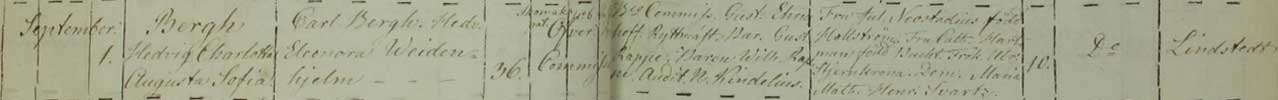 September.
1.
Bergh
Hedvig Charlotta
Augusta Sofia.
Carl Bergh. Hedv.
Eleonora Weiden-
hjelm - - -
36.
Öfver
Commiss.
Bco Commiss. Gust. Ehren
hoff. Ryttmäst. Bar. Gust
Rappe. Baron Wilh. Rap
pe. Audit. N. Kindelius.
Fru Jul. Neostadius född
Hallström. Fru Cath. Hart
man född Bucht. Frök. Ulr.
Stjernkrona. Dem. Maria
Math. Henr. Svartz.
10.
Do
Lindstedt